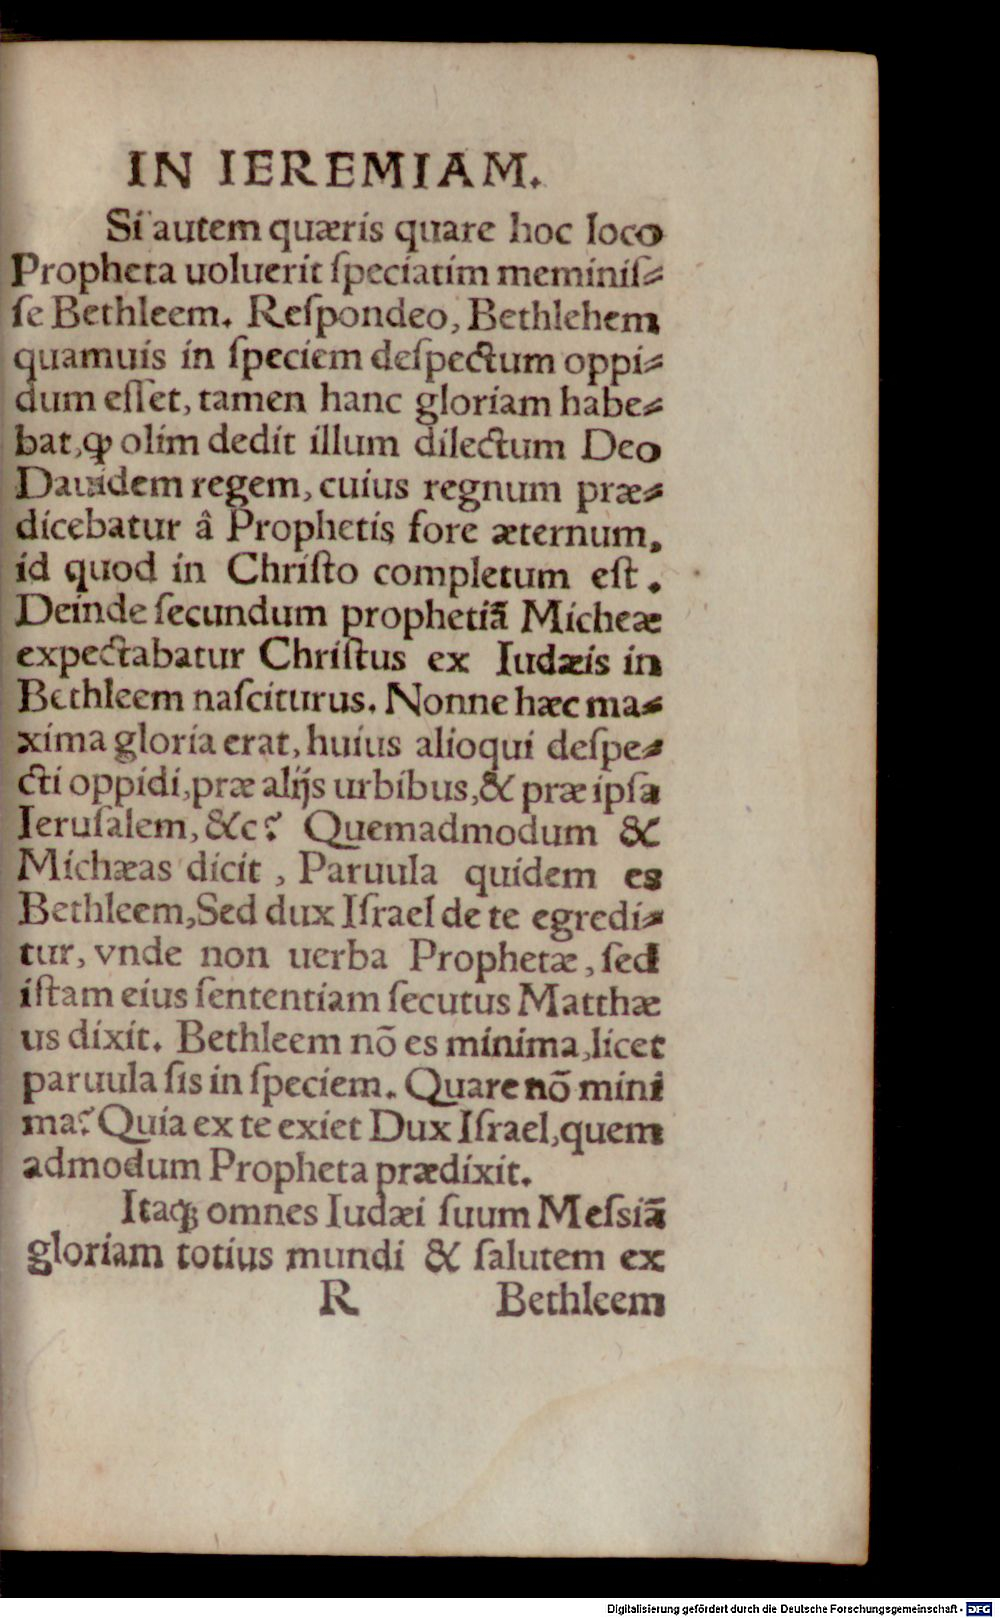 IN IEREMIAM.
Si autem quæris quare hoc loco
Propheta uoluerit ſpeciatim meminiſ⸗
ſe Bethleem. Reſpondeo, Bethlehem
quamuis in ſpeciem deſpectum oppi⸗
dum eſſet, tamen hanc gloriam habe⸗
bat, ꝙ olim dedit illum dilectum Deo
Dauidem regem, cuius regnum præ⸗
dicebatur â Prophetis fore æternum,
id quod in Chriſto completum eſt.
Deinde ſecundum prophetiã Micheæ
expectabatur Chriſtus ex Iudæis in
Bethleem naſciturus. Nonne hæc ma⸗
xima gloria erat, huius alioqui deſpe⸗
cti oppidi, præ alijs urbibus, & præ ipſa
Ieruſalem, &c? Quemadmodum &
Michæas dicit, Paruula quidem es
Bethleem, Sed dux Iſrael de te egredi⸗
tur, vnde non uerba Prophetæ, ſed
iſtam eius ſententiam ſecutus Matthæ
us dixit. Bethleem nõ es minima, licet
paruula ſis in ſpeciem. Quare nõ mini
ma? Quia ex te exiet Dux Iſrael, quem
admodum Propheta prædixit.
Itaqꝫ omnes Iudæi ſuum Meſsiã
gloriam totius mundi & ſalutem ex
R Bethleem
Digitalisierung gefördert durch die Deutsche Forschungsgemeinschaft - DFG